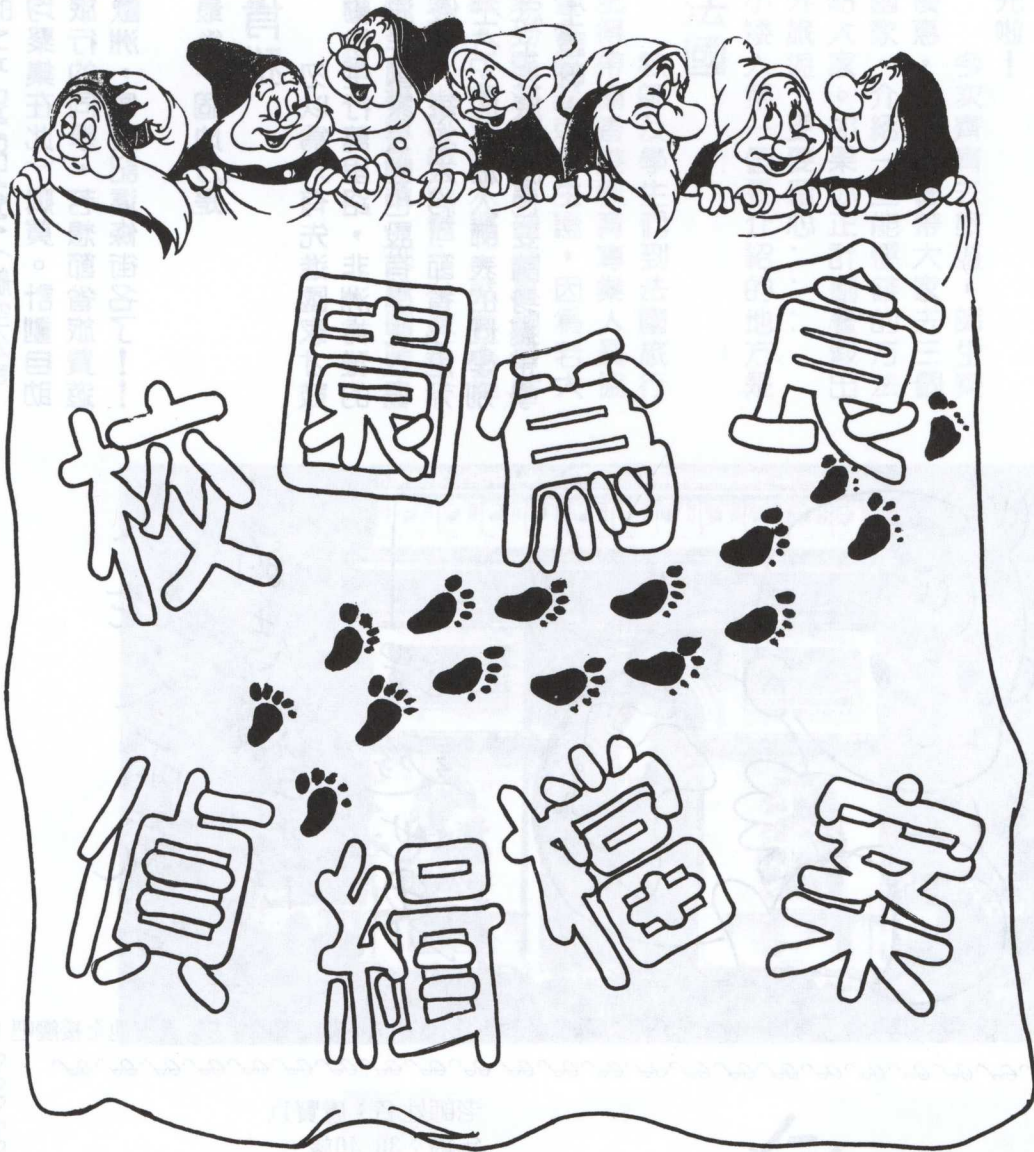 校園為食
偵緝檔案